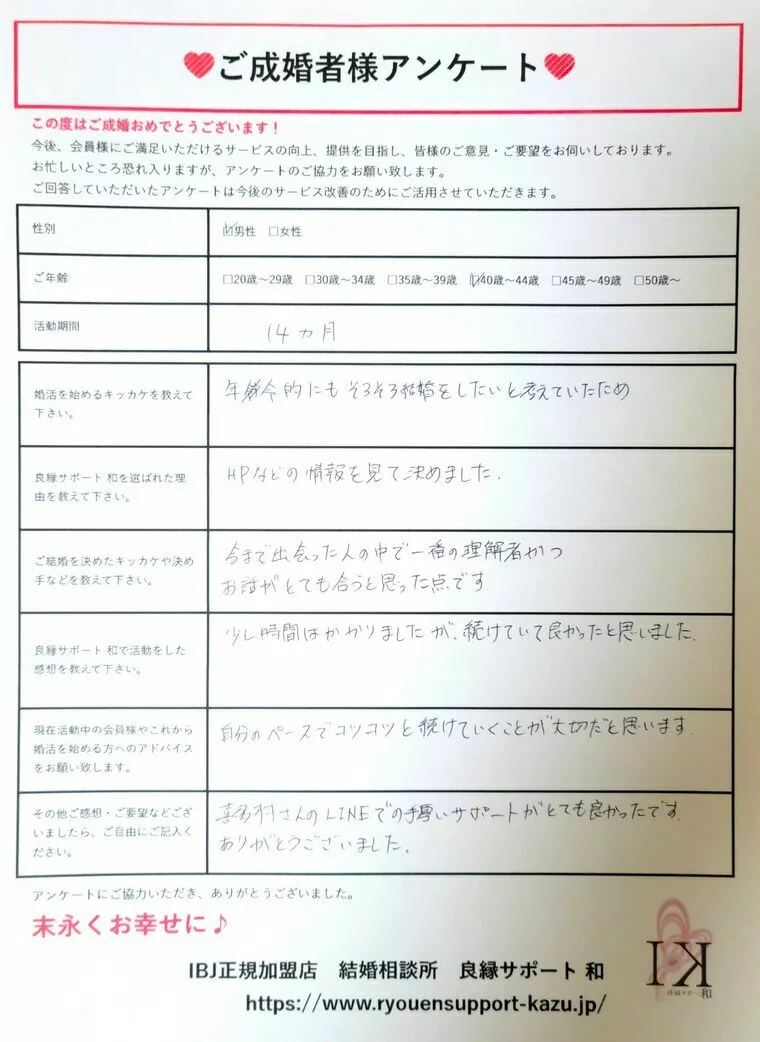 ご成婚者様アンケート
この度はご成婚おめでとうございます！
今後、会員様にご満足いただけるサービスの向上、提供を目指し、皆様のご意見・ご要望をお伺いしております。
お忙しいところ恐れ入りますが、アンケートのご協力をお願い致します。
ご回答していただいたアンケートは今後のサービス改善のためにご活用させていただきます。
性別
☑男性 □女性
ご年齢
□20歳～29歳 □30歳～34歳 □35歳～39歳 ☑40歳～44歳 □45歳～49歳 □50歳～
活動期間
14ヵ月
婚活を始めるキッカケを教えて
下さい。
年齢的にもそろそろ結婚をしたいと考えていたため
良縁サポート 和を選ばれた理
由を教えて下さい。
HPなどの情報を見て決めました.
ご結婚を決めたキッカケや決め
手などを教えて下さい。
今まで出会った人の中で一番の理解者かつ
お話がとても合うと思った点です
良縁サポート 和で活動をした
感想を教えて下さい。
少し時間はかかりましたが、続けていて良かったと思いました.
現在活動中の会員様やこれから
婚活を始める方へのアドバイス
をお願い致します。
自分のペースでコツコツと続けていくことが大切だと思います.
その他ご感想・ご要望などござ
いましたら、ご自由にご記入く
ださい。
喜多村さんのLINEでの手厚いサポートがとても良かったです.
ありがとうございました.
アンケートにご協力いただき、ありがとうございました。
末永くお幸せに♪
IBJ正規加盟店 結婚相談所 良縁サポート 和
https://www.ryouensupport-kazu.jp/
良縁サポート 和